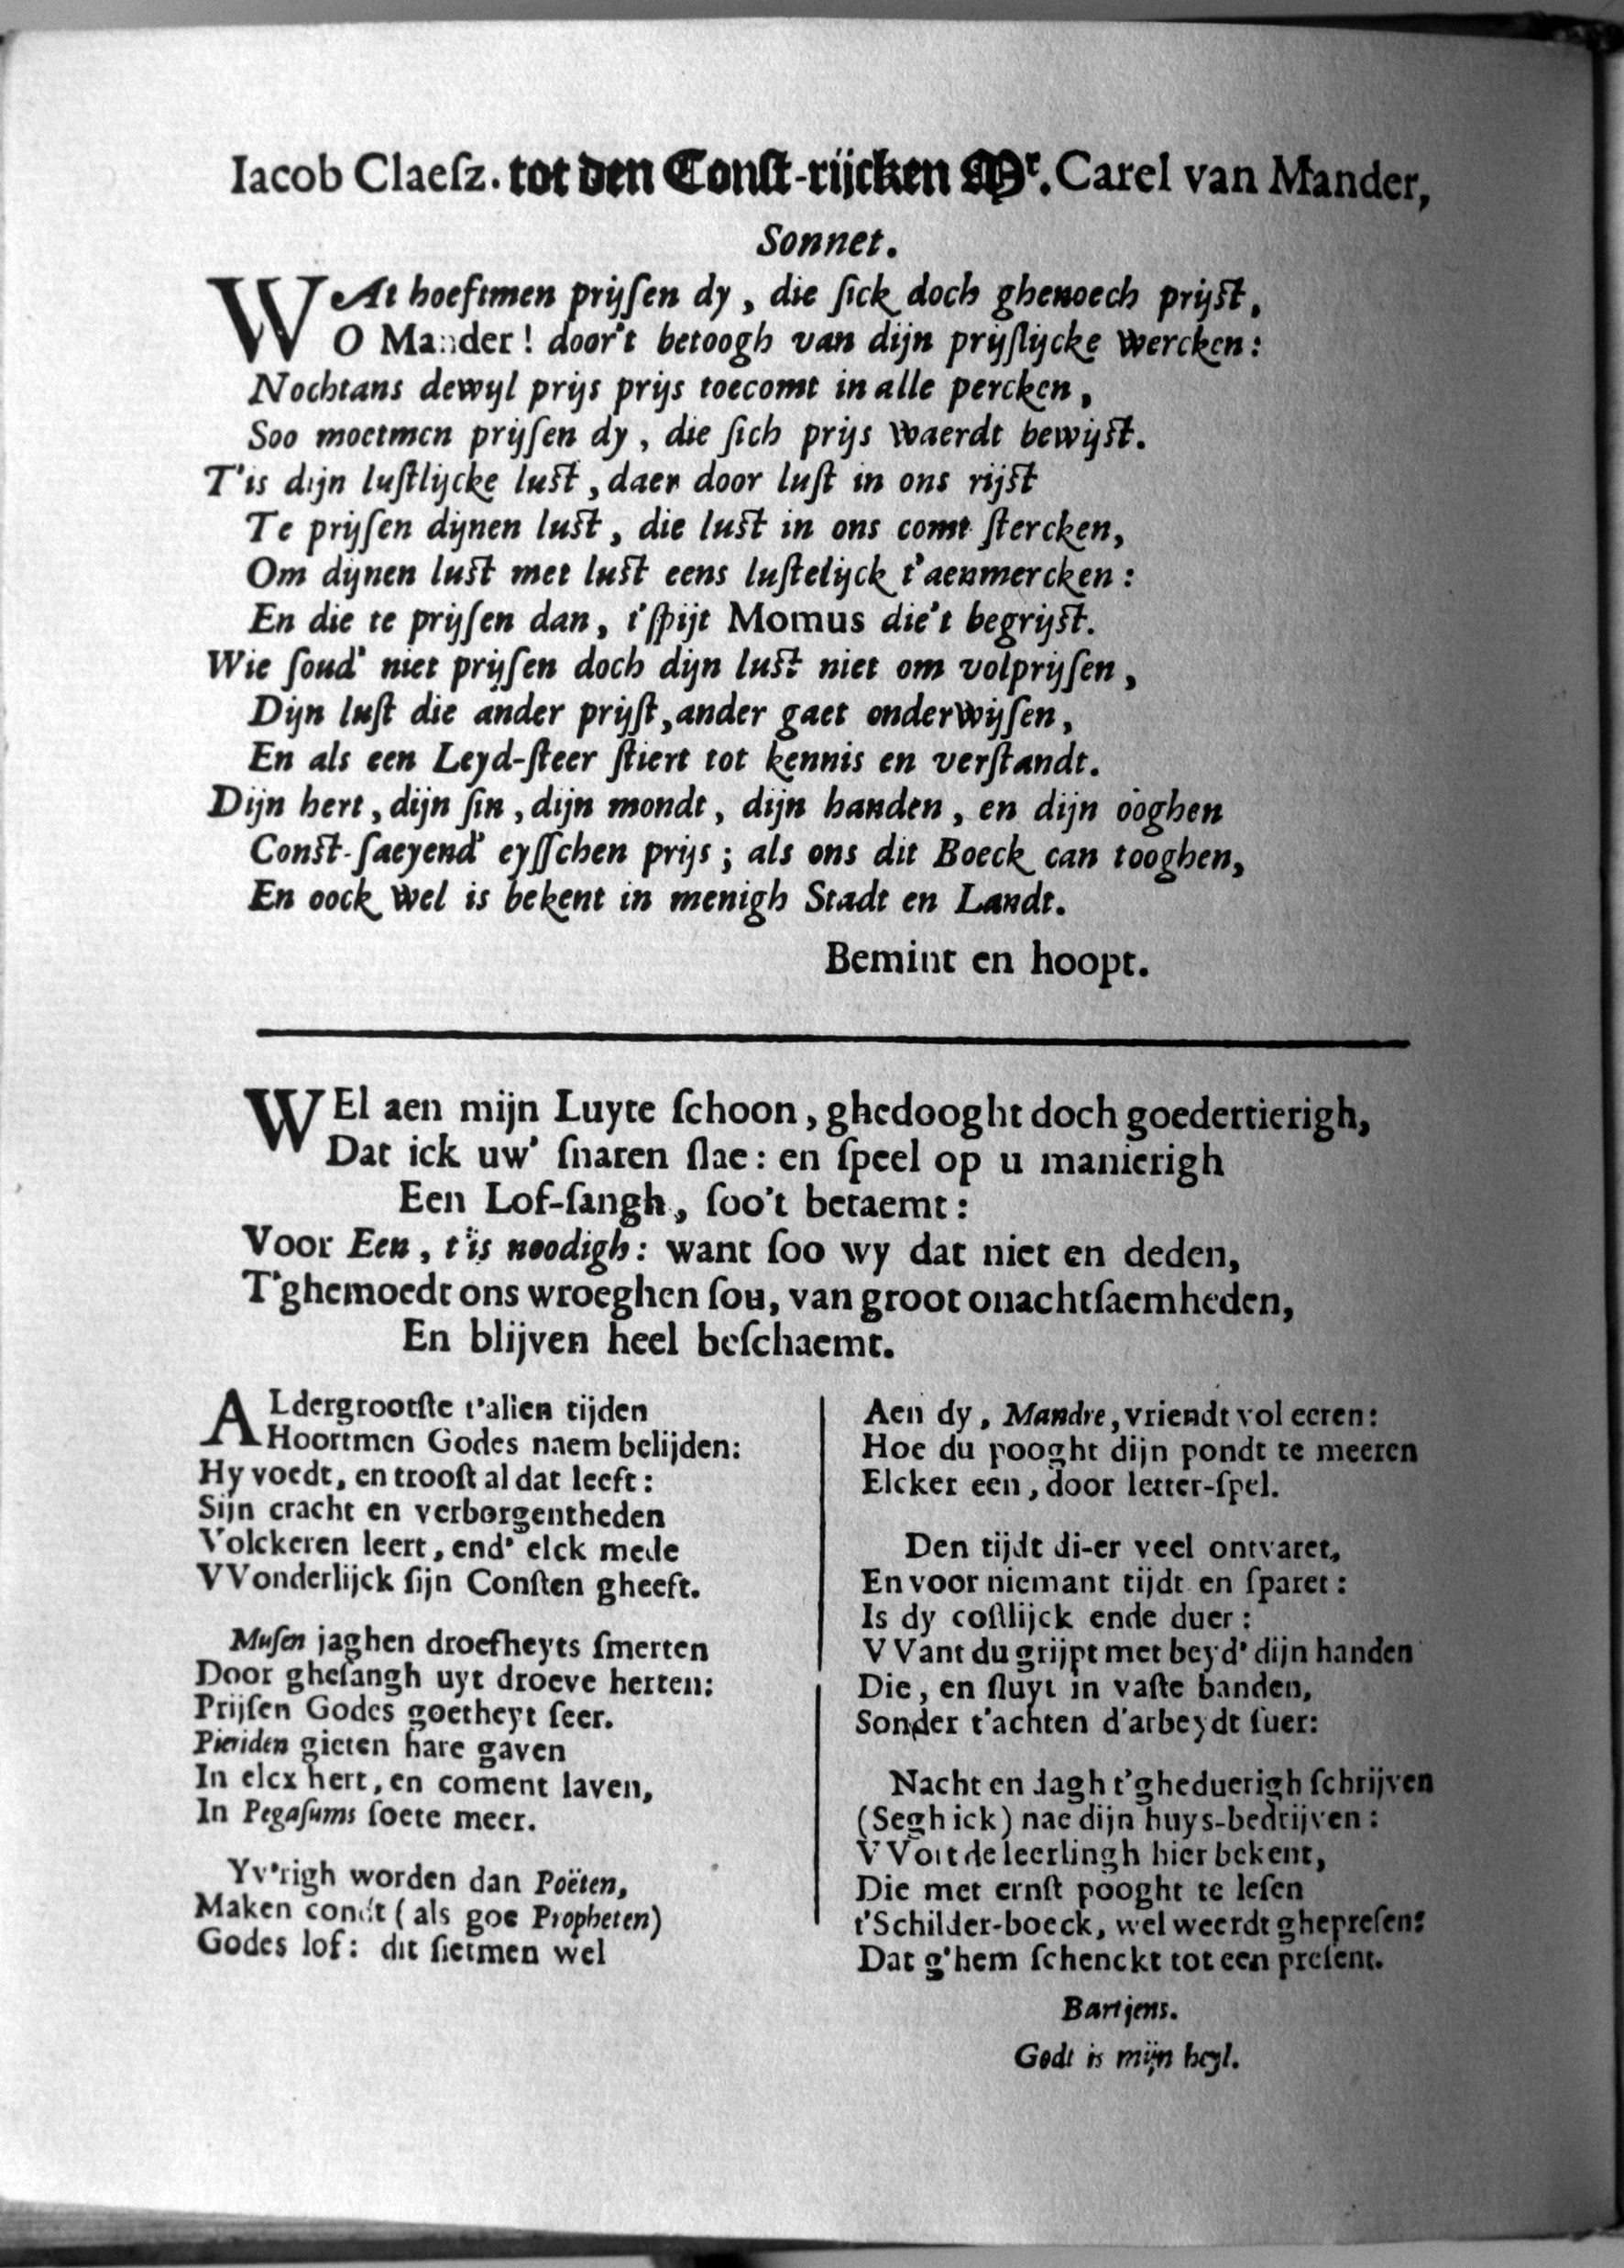 Iacob Claeſz. tot den Conſt-rijcken Mr. Carel van Mander,
Sonnet.
WAt hoeftmen prijſen dy, die ſick doch ghenoech prijſt,
O Mander! door't betoogh van dijn prijſlijcke wercken:
Nochtans dewyl prijs prijs toecomt in alle percken,
Soo moetmen prijſen dy, die ſich prijs waerdt bewijſt.
T'is dijn luſtlijcke luſt, daer door luſt in ons rijſt
Te prijſen dijnen luſt, die luſt in ons comt ſtercken,
Om dijnen luſt met luſt eens luſtelijck t'aenmercken:
En die te prijſen dan, t'ſpijt Momus die't begrijſt.
Wie ſoud' niet prijſen doch dijn luſt niet om volprijſen,
Dijn luſt die ander prijſt, ander gaet onderwijſen,
En als een Leyd-ſteer ſtiert tot kennis en verſtandt.
Dijn hert, dijn ſin, dijn mondt, dijn handen, en dijn ooghen
Conſt-ſaeyend' eyſſchen prijs; als ons dit Boeck can tooghen,
En oock wel is bekent in menigh Stadt en Landt.
Bemint en hoopt.
WEl aen mijn Luyte ſchoon, ghedooght doch goedertierigh,
Dat ick uw' ſnaren ſlae: en ſpeel op u manierigh
Een Lof-ſangh, ſoo't betaemt:
Voor Een, t'is noodigh: want ſoo wy dat niet en deden,
T'ghemoedt ons wroeghen ſou, van groot onachtſaemheden,
En blijven heel beſchaemt.
ALdergrootſte t'allen tijden
Hoortmen Godes naem belijden:
Hy voedt, en trooſt al dat leeft:
Sijn cracht en verborgentheden
Volckeren leert, end' elck mede
VVonderlijck ſijn Conſten gheeft.
Muſen jaghen droefheyts ſmerten
Door gheſangh uyt droeve herten:
Prijſen Godes goetheyt ſeer.
Pieriden gieten hare gaven
In elcx hert, en coment laven,
In Pegaſums ſoete meer.
Yv'righ worden dan Poëten,
Maken condt (als goe Propheten)
Godes lof: dit ſietmen wel
Aen dy, Mandre, vriendt vol eeren:
Hoe du pooght dijn pondt te meeren
Elcker een, door letter-ſpel.
Den tijdt di-er veel ontvaret,
En voor niemant tijdt en ſparet:
Is dy coſtlijck ende duer:
VVant du grijpt met beyd' dijn handen
Die, en ſluyt in vaſte banden,
Sonder t'achten d'arbeydt ſuer:
Nacht en dagh t'gheduerigh ſchrijven
(Segh ick) nae dijn huys-bedrijven:
VVort de leerlingh hier bekent,
Die met ernſt pooght te leſen
t'Schilder-boeck, wel weerdt ghepreſen:
Dat g'hem ſchenckt tot een preſent.
Bartjens.
Godt is mijn heyl.